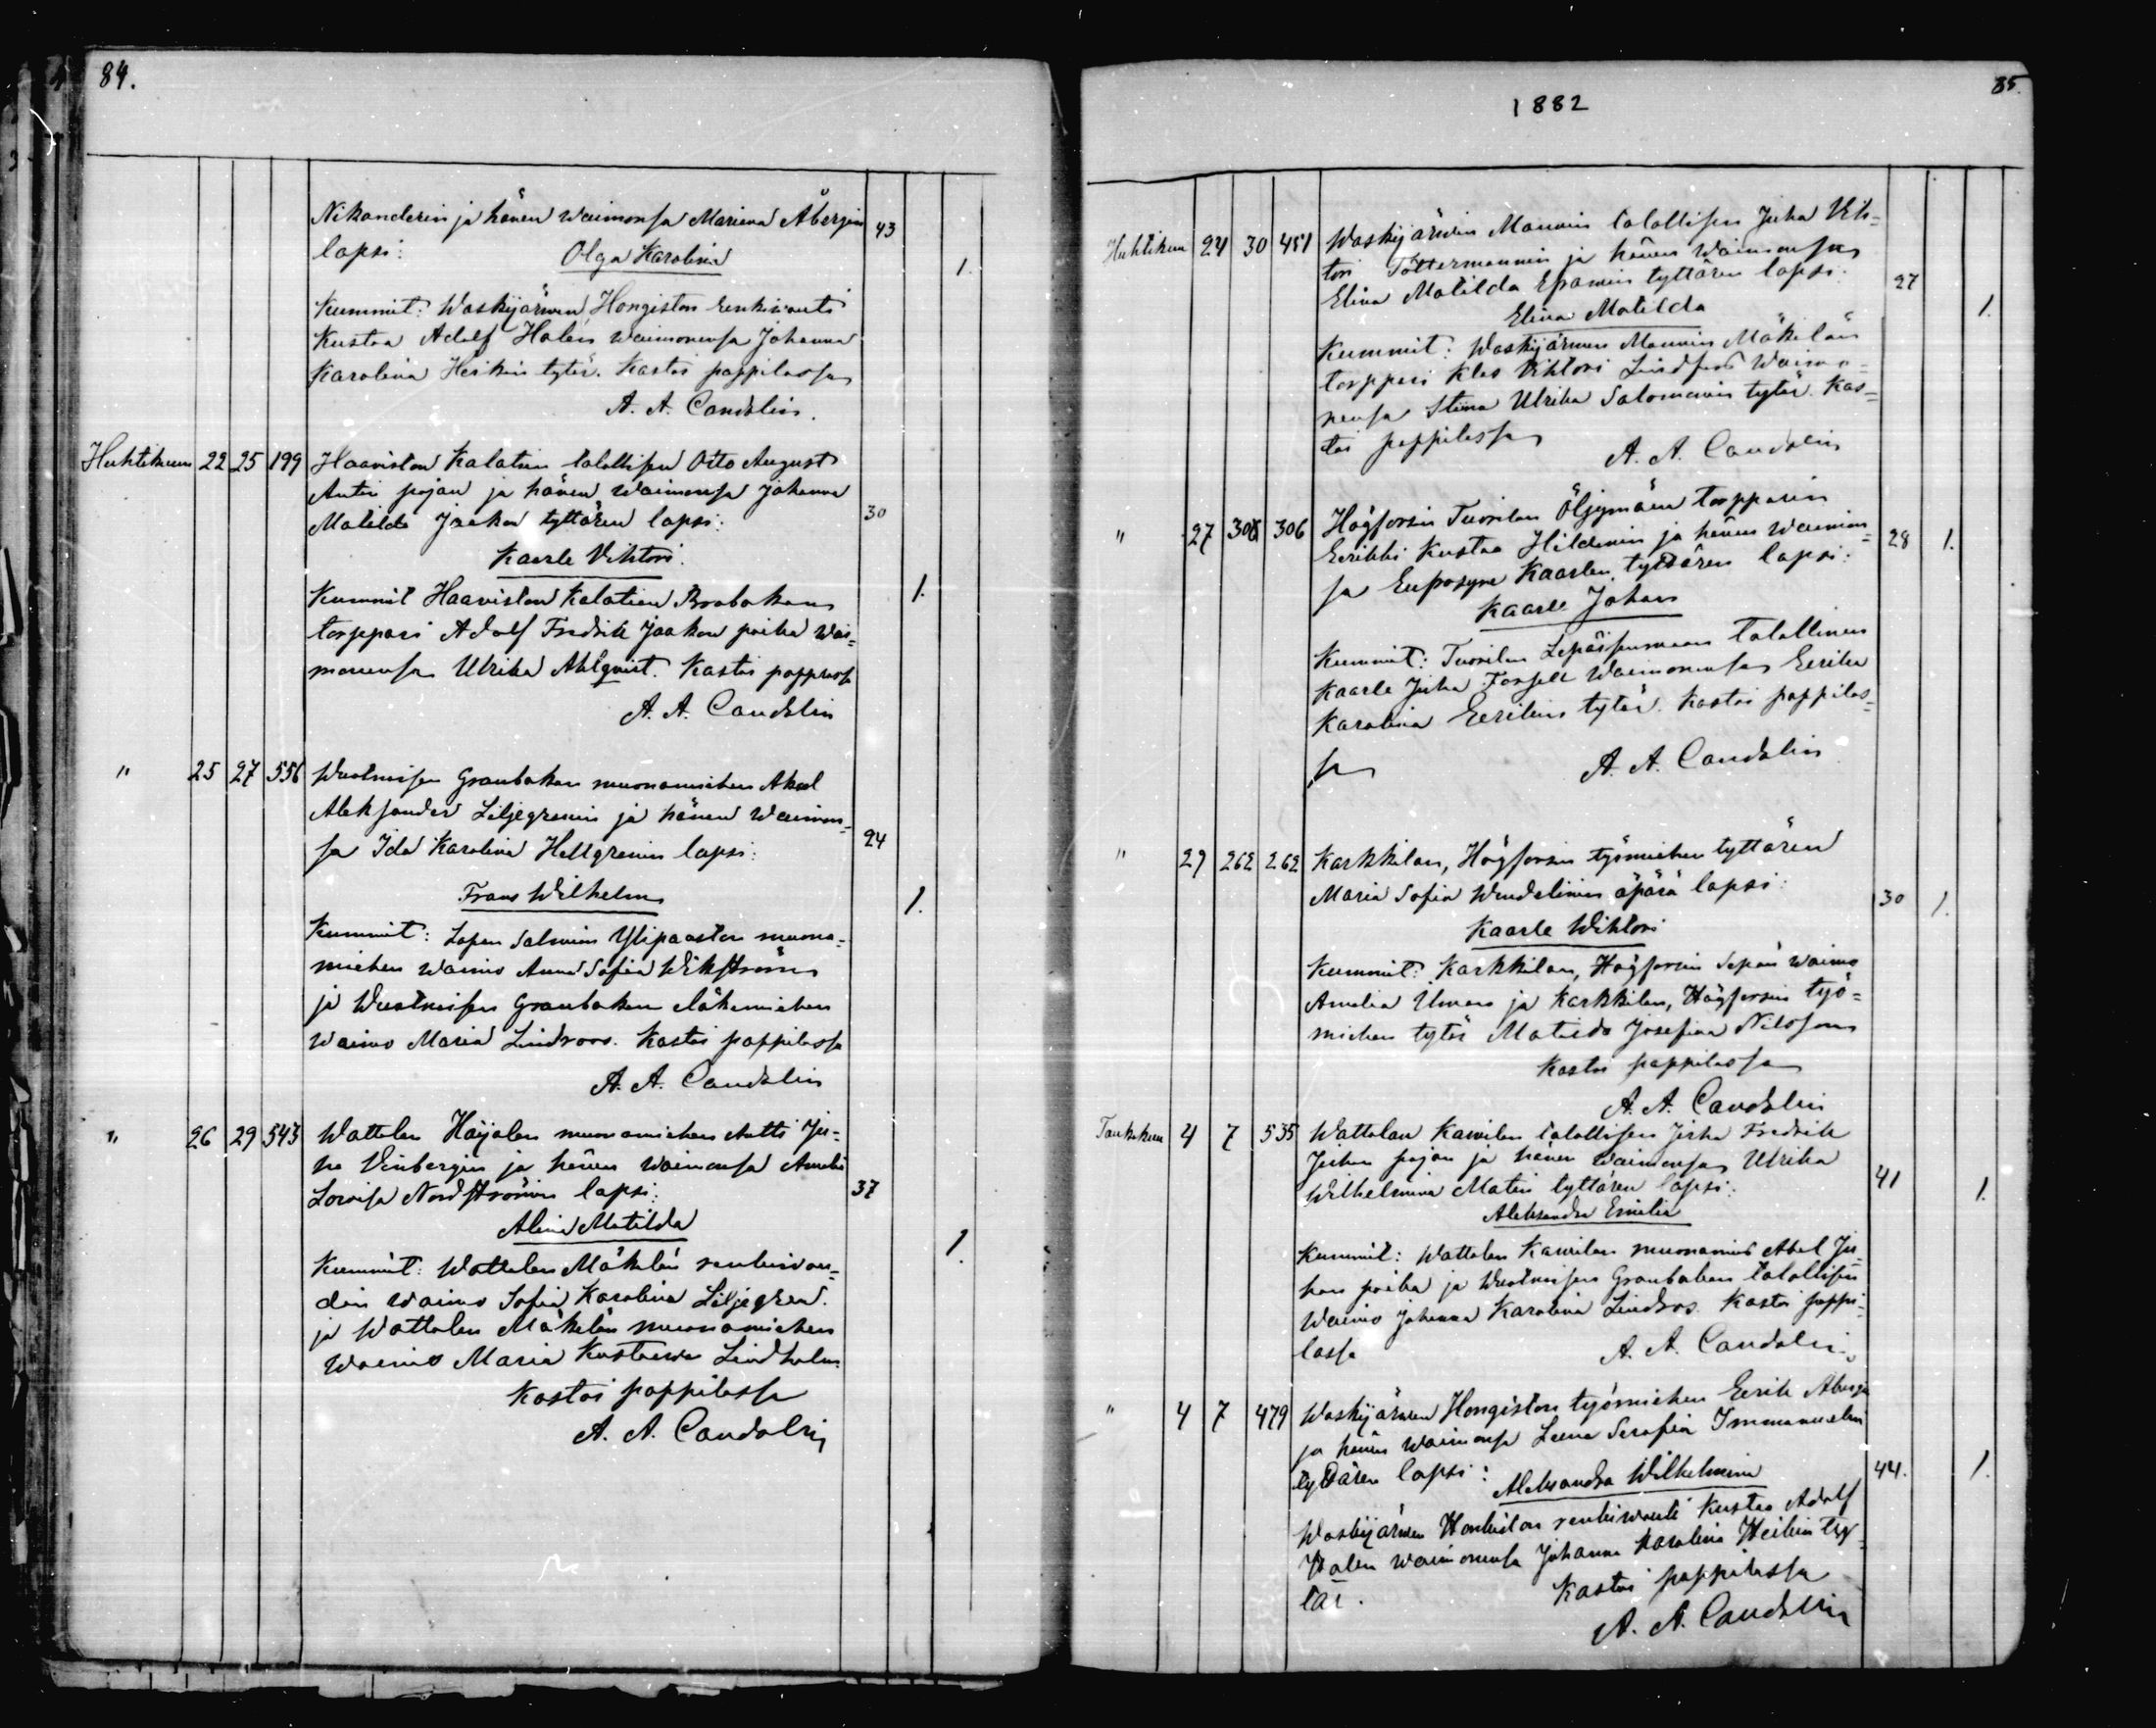 84.
Nikanderin ja hänen waimonsa Mariana Åbergin 43
lapsi: Olga Karolina 1.
Kummit: Waskijärwen Hongiston renkivouti
Kustaa Adolf Halén waimonensa Johanna
Karolina Heikin tytär. Kastoi pappilassa
A. A. Candolin.
Huhtikuun 22 25 199 Haaviston Kalatien talollisen Otto August
Antin pojan ja hänen waimonsa Johanna
Matilda Jaakon tyttären lapsi: 30
Kaarle Vihtori.
Kummit Haaviston Kalatien Brobakan 1.
torppari Adolf Fredrik Jaakon poika wai=
monensa Ulrika Ahlqvist. Kastoi papplassa
A. A. Candolin
" 25 27 556 Granbakan muonamiehen Aksel
Aleksander Liljegrenin ja hänen waimon=
sa Ida Karolina Hellgrenin lapsi: 24
Frans Wilhelm 1.
Kummit: Lopen Salmin Ylipaaston muona=
miehen waimo Anna Sofia Wikström
ja Granbakan mäkimiehen
waimo Maria Lindroos. Kastoi pappilassa
A. A. Candolin
" 26 29 543 Wattolan Haijalan muonamiehen Antti Ju=
ha Vinbergin ja hänen waimonsa Amalia
Lowisa Nordströmin lapsi: 37
Alina Matilda 1.
Kummit: Wattolan Mäkelän renkivou=
din waimo Sofia Karolina Liljegren.
ja Wattolan Mäkelän muonamiehen
waimo Maria Kustaava Lindholm
Kastoi pappilassa
A. A. Candolin
85.
1882
Huhtikuu 24 30 451 Waskijärwen Mannin talollisen Juha Vih=
tori Töttermannin ja hänen waimonsa
Elina Matilda Esamin tyttären lapsi. 27
Elina Matilda 1.
Kummit: Waskijärwen Mannin Mäkelän
torppari Klas Vihtori Lindfors waimo=
nensa Stina Ulrika Salomonin tytär. Kas=
toi pappilassa
A. A. Candolin
" 27 30 306 Högforsin Tuorilan Öljymäen torpparin
Eerikki Kustaa Hildenin ja hänen waimon= 28 1.
sa Euprosyne Kaarlen tyttären lapsi:
Kaarle Johan
Kummit: Tuorilan talollinen
Kaarle Juha Forsell waimonensa Eerika
Karolina Eerikin tytär. Kastoi pappilas=
sa A. A. Candolin
" 29 262 262 Karkkilan, Högforsin työmiehen tyttären
Maria Sofia Wendelinin äpärä lapsi: 30 1.
Kaarle Wihtori
Kummit: Karkkilan, Högforsin sepän waimo
Amalia Ulman ja Karkkilan, Högforsin työ=
miehen tytär Matilda Josefina Nilsson
Kastoi pappilassa
A. A. Candolin
Toukokuu 4 7 535 Wattolan Kawilan talollisen Juha Fredrik
Juhan pojan ja hänen waimonsa Ulrika
Wilhelmina Matin tyttären lapsi: 41 1.
Aleksandra Emilia
Kummit: Wattolan Kawilan muonamies Abel Ju=
han poika ja Granbakan talollisen
waimo Johanna Karolina Lindros Kastoi pappi=
lassa A. A. Candolin
" 4 7 479 Waskijärwen Hongiston työmiehen Eerik Åbergin
ja hänen waimonsa Leena Serafia Immanuelin
tyttären lapsi: Aleksandra Wilhelmina 44. 1.
Waskijärwen Honkiston renkiwouti Kustaa Adolf
Halén waimonensa Johanna Karolina Heikin ty=
tär. Kastoi pappilassa
A. A. Candolin